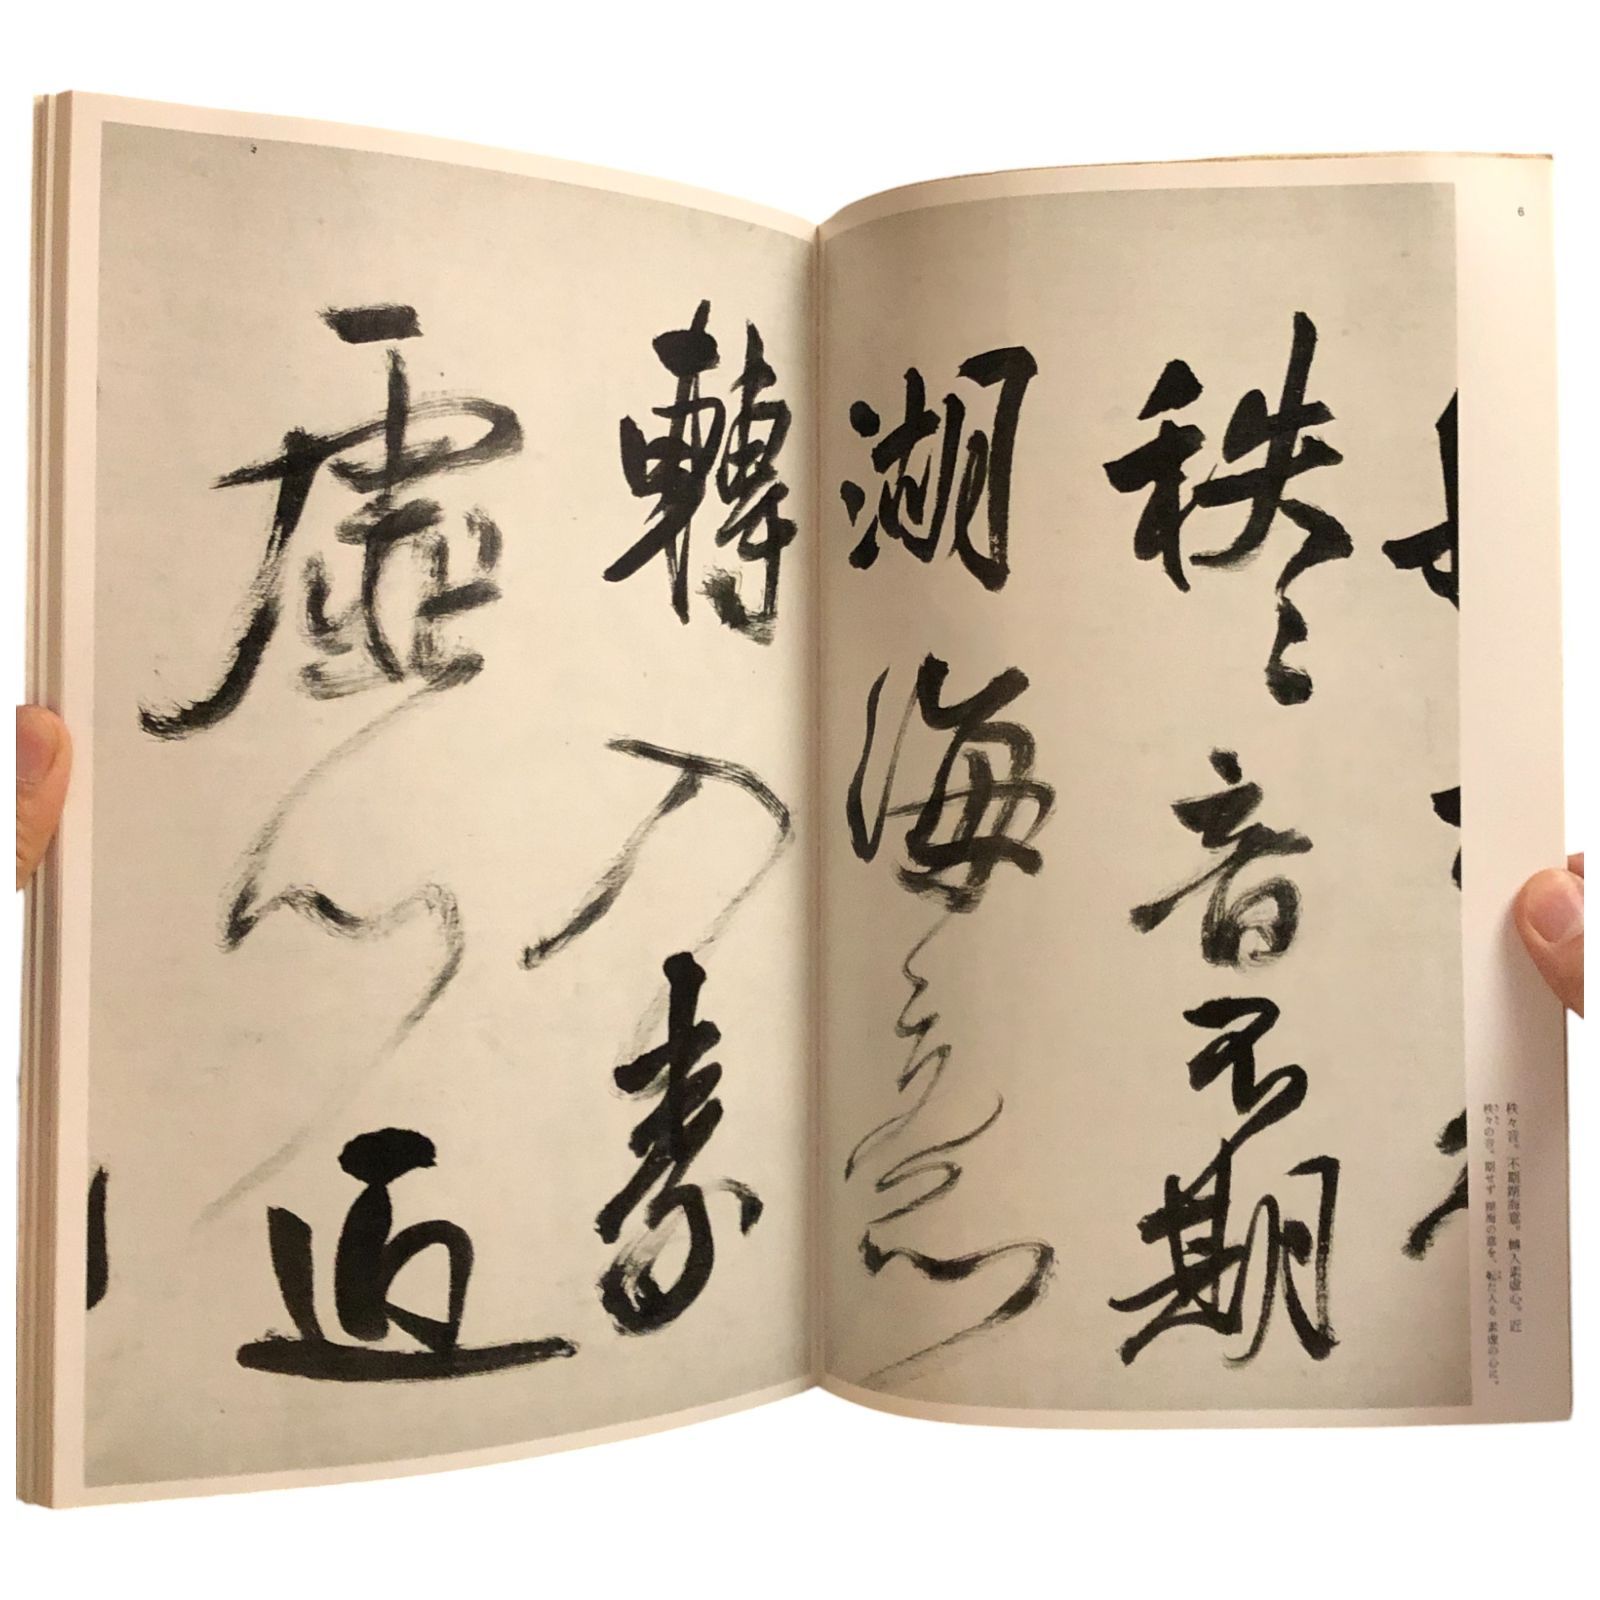 6
秩々音。不期湖海意。轉入素虚心。近
秩々の音。期せず 湖海の意を、転た入る 素虚の心に。
秩〻音不期
湖海意
轉入素
虚心近